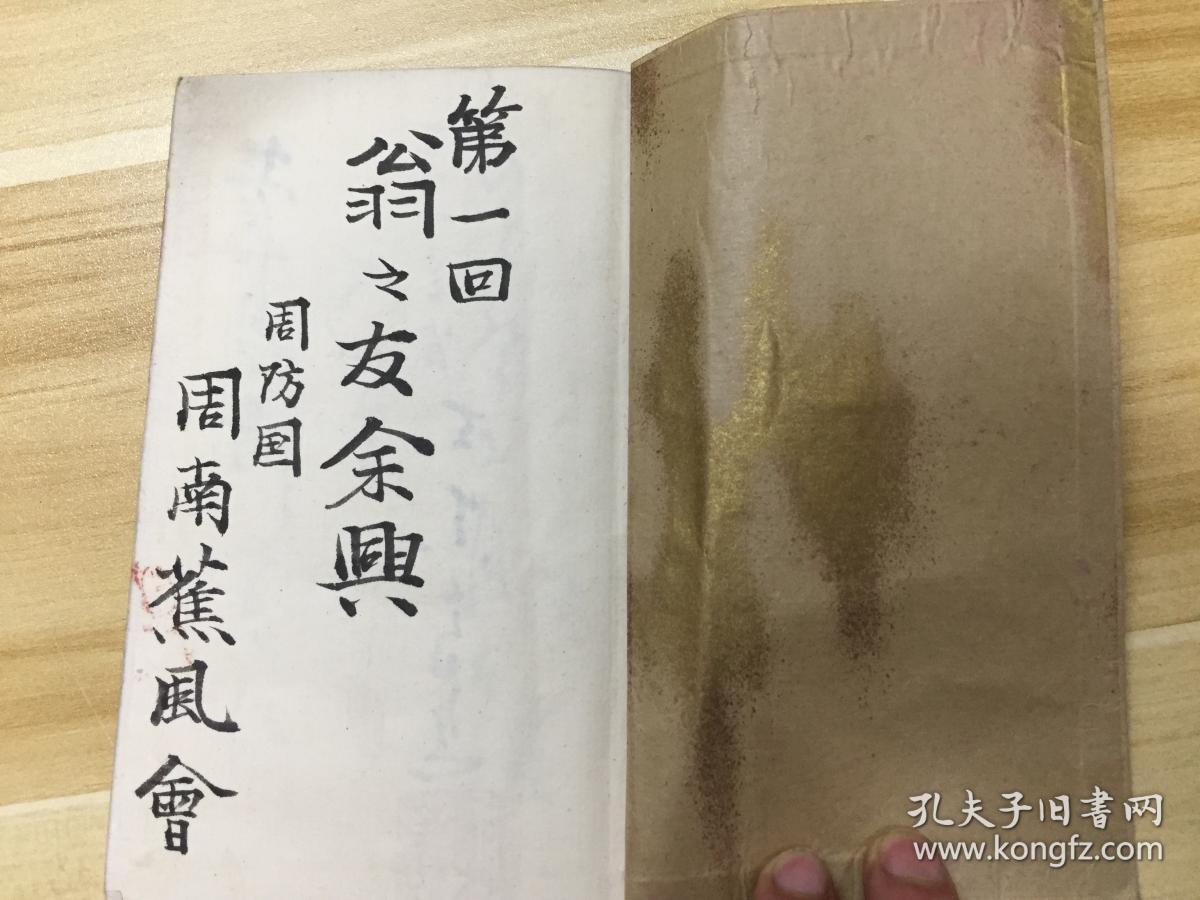 第一回
翁之友余興
周防国
周南蕉風會
孔夫子旧书网
www.kongfz.com